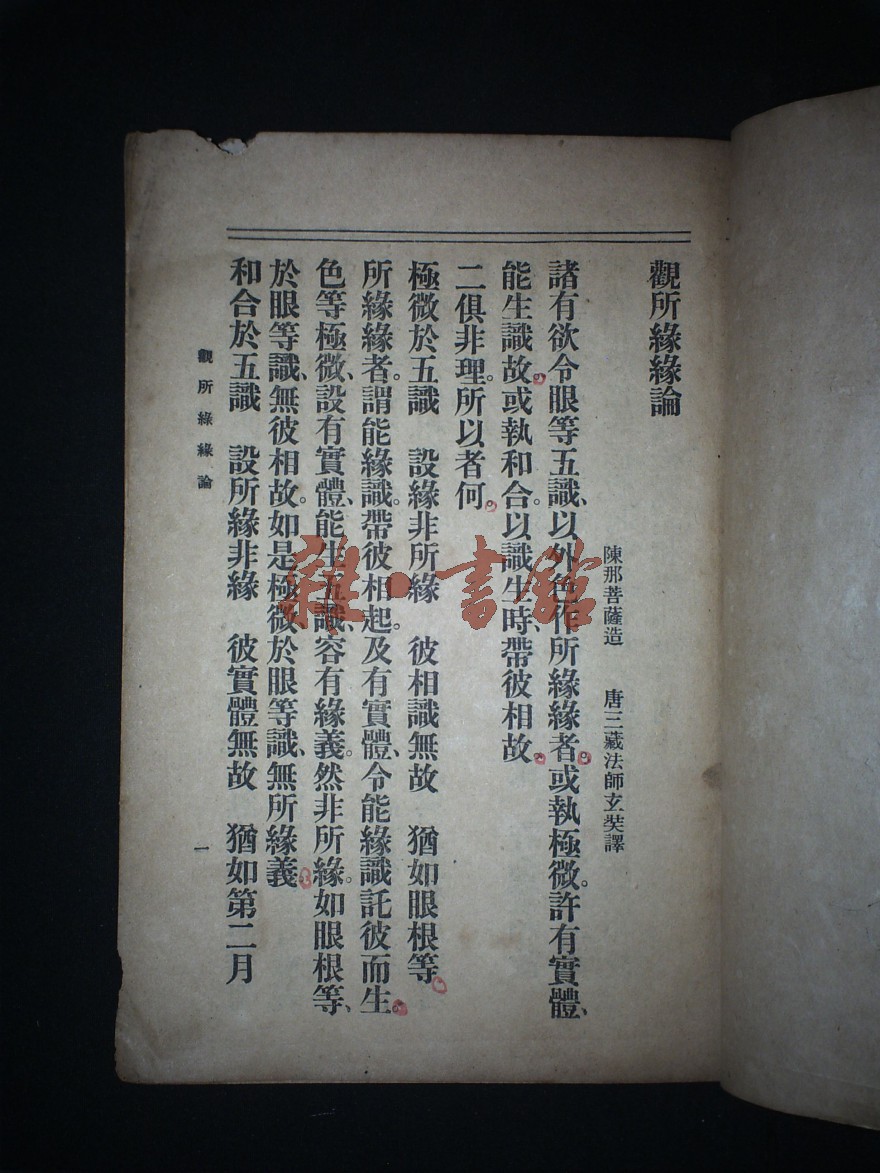 觀所緣緣論
陳那菩薩造　唐三藏法師玄奘譯
諸有欲令眼等五識、以外色作所緣緣者。或執極微。許有實體、
能生識故。或執和合。以識生時、帶彼相故。
二俱非理。所以者何。
極微於五識　設緣非所緣　彼相識無故　猶如眼根等
所緣緣者。謂能緣識。帶彼相起。及有實體、令能緣識託彼而生。
色等極微、設有實體、能生五識、容有緣義。然非所緣。如眼根等、
於眼等識、無彼相故。如是極微、於眼等識、無所緣義
和合於五識　設所緣非緣　彼實體無故　猶如第二月
觀所緣緣論　一
雜·書館